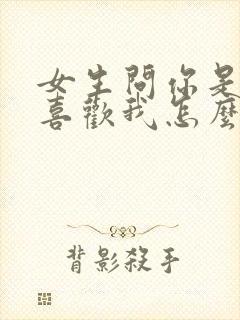 女生問你是
喜歡我怎麼
背影殺手